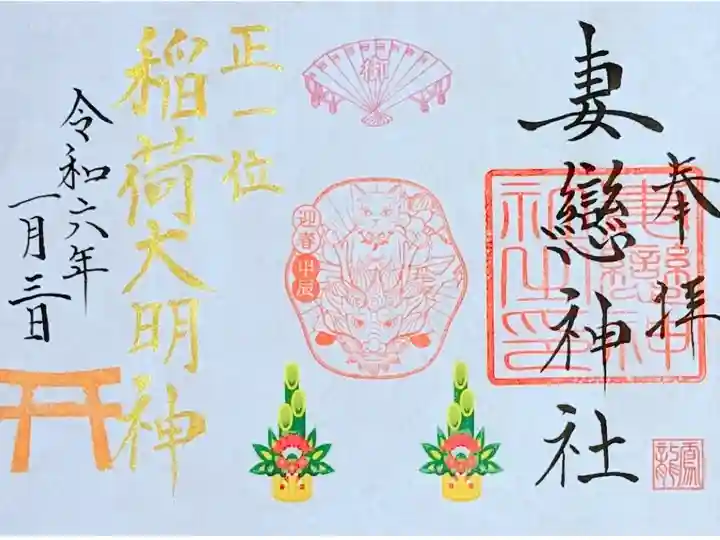 奉拝
妻戀神社
妻戀神社之印
御
迎春
甲辰
正一位
稲荷大明神
令和六年
一月三日